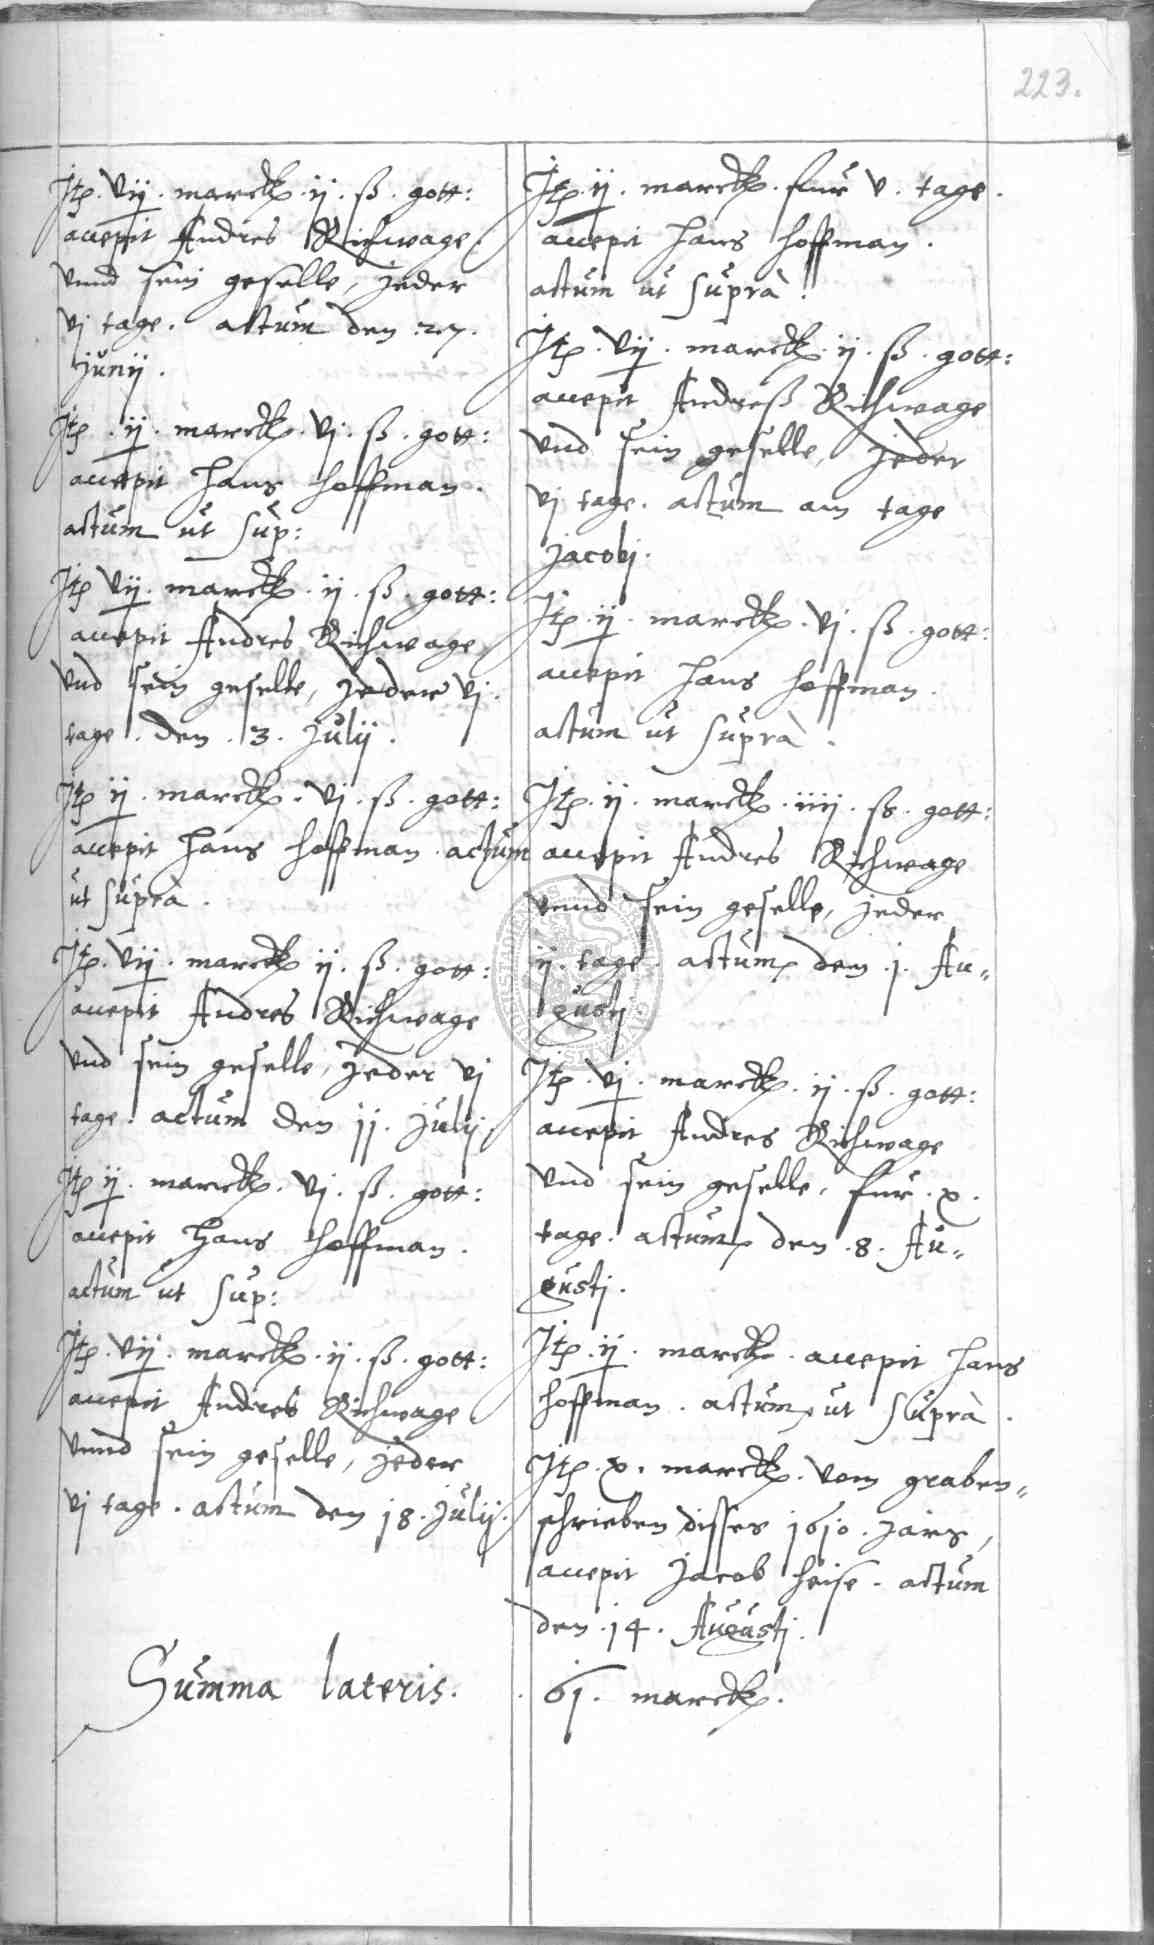 223.
Jtp. vij. marckp. ij. ß. gott:
accepit Andres Richwage
vnnd sein geselle, jeder
vj tage. actum den .27.
Junij.
Jtp. ij. marckp. vj. ß. gott:
accepit Hans Hoffman.
actum ut sup:
Jtp vij. marckp. ij. ß. gott:
accepit Andres Richwage
vnd sein geselle, jeder vj.
tage. den .3. Julij.
Jtp ij. marckp. vj. ß. gott:
accepit Hans Hoffman. actum
ut suprà.
Jtp. vij. marckp ij. ß. gott:
accepit Andres Richwage
vnd sein geselle, jeder vj
tage. actum den jj. Julij.
Jtp ij. marckp. vj. ß. gott:
accepit Hans Hoffman.
actum ut sup:
Jtp. vij. marckp. ij. ß. gott:
accepit Andres Richwage
vnnd sein geselle, jeder
vj tage. actum den j8. Julij.
Jtp. ij. marckp. fur v. tage.
accepit Hans Hoffman.
actum ut suprà.
Jtp. vij. marckp. ij. ß. gott:
accepit Andreß Richwage
vnd sein geselle, jeder
vj tage. actum am tage
Jacobj.
Jtp. ij. marckp. vj. ß. gott:
accepit Hans Hoffman.
actum ut suprà.
Jtp. ij. marckp. iiij. ß. gott:
accepit Andres Richwage
vnnd sein geselle, jeder
ij. tage. actum den .j. Au„
gustj.
Jtp. vj. marckp. ij. ß. gott:
accepit Andres Richwage
vnd sein geselle, fur .x.
tage. actum den .8. Au„
gustj.
Jtp. ij. marckp. accepit Hans
Hoffman. actum ut suprà.
Jtp. x. marckp. vom graben„
schrieben disses j6j0. Jars,
accepit Jacob Heise. actum
den .j4. Augustj.
Summa lateris. . 6j. marckp.